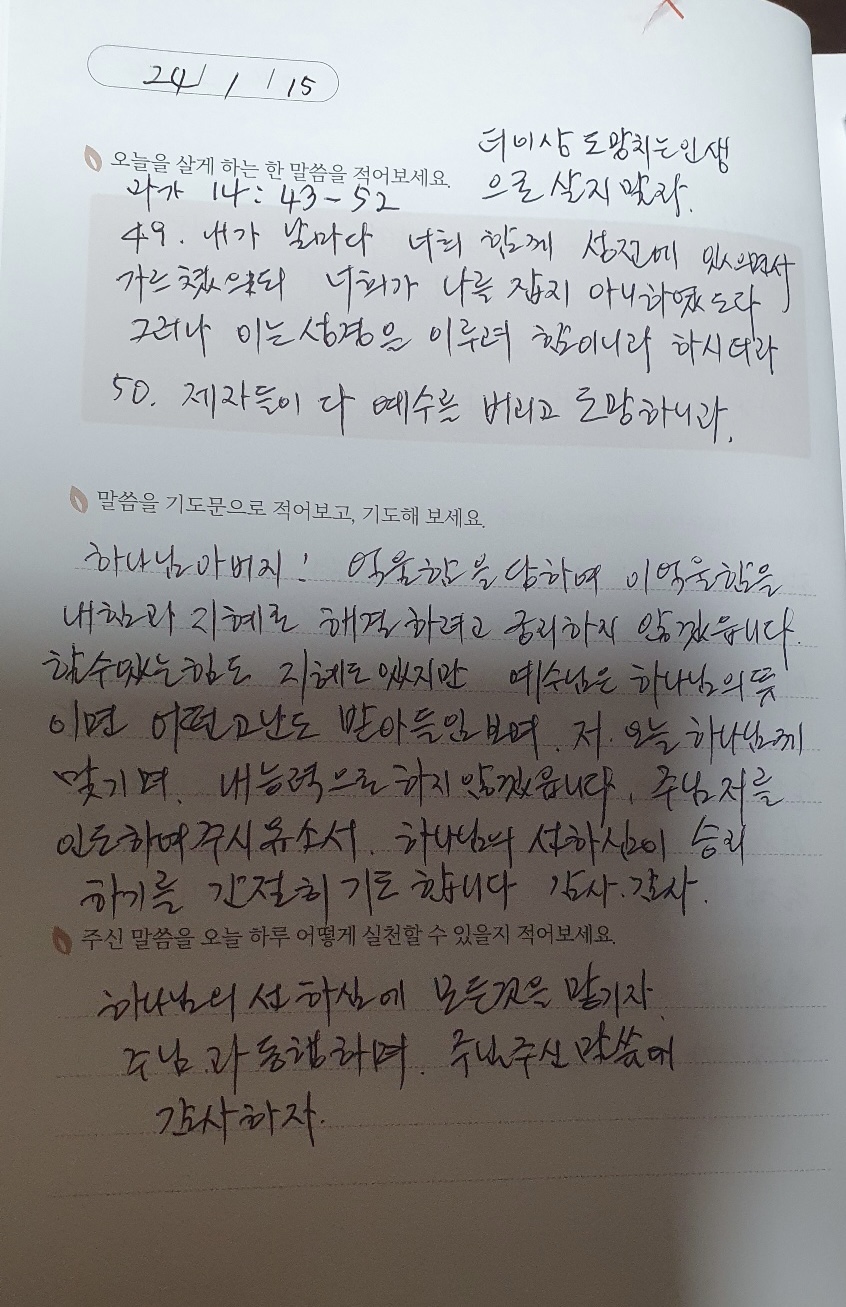 24 / 1 / 15
더이상 도망치는 인생
으로 살지 말자.
오늘을 살게 하는 한 말씀을 적어보세요.
마가 14:43-52
49. 내가 날마다 너희 함께 성전에 있으면서
가르쳤으되 너희가 나를 잡지 아니하였도다
그러나 이는 성경을 이루려 함이니라 하시더라
50. 제자들이 다 예수를 버리고 도망하니라.
말씀을 기도문으로 적어보고, 기도해 보세요.
하나님아버지! 억울함을 당하며 이억울함을
내힘과 지혜로 해결하려고 궁리하지 않겠읍니다.
할수있는힘도 지혜도있지만 예수님은 하나님의뜻
이면 어떤고난도 받아들임 보며. 저. 오늘 하나님께
맞기며. 내능력으로 하지않겠읍니다. 주님저를
인도하여주시옵소서. 하나님의 선하심이 승리
하기를 간절히 기도합니다 감사.감사.
주신 말씀을 오늘 하루 어떻게 실천할 수 있을지 적어보세요.
하나님의 선하심에 모든것을 맡기자.
주님과동행하며. 주님주신말씀에
감사하자.